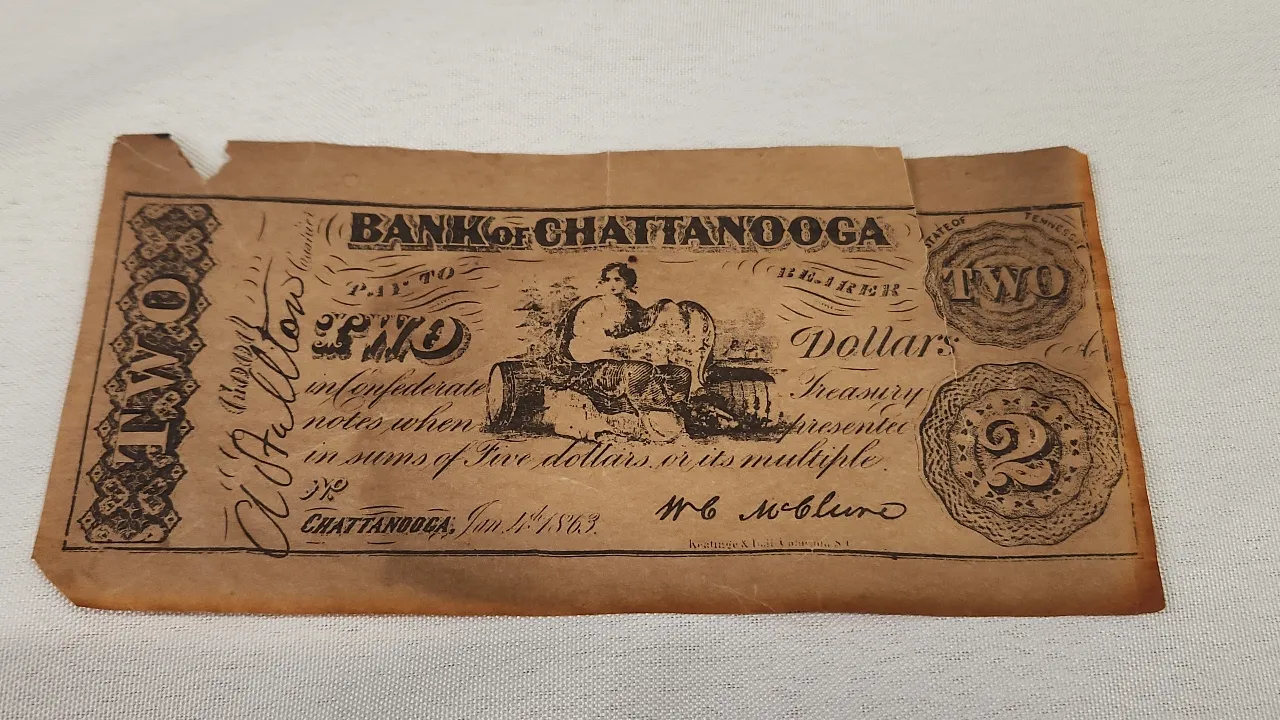 BANK OF CHATTANOOGA
STATE OF TENNESSEE
TWO
PAY TO BEARER
TWO
TWO Dollars
in Confederate Treasury
notes when presented
in sums of Five dollars or its multiple.
2
No
CHATTANOOGA, Jan. 4th 1863.
Keatinge & Ball Columbia S.C.
Cashier